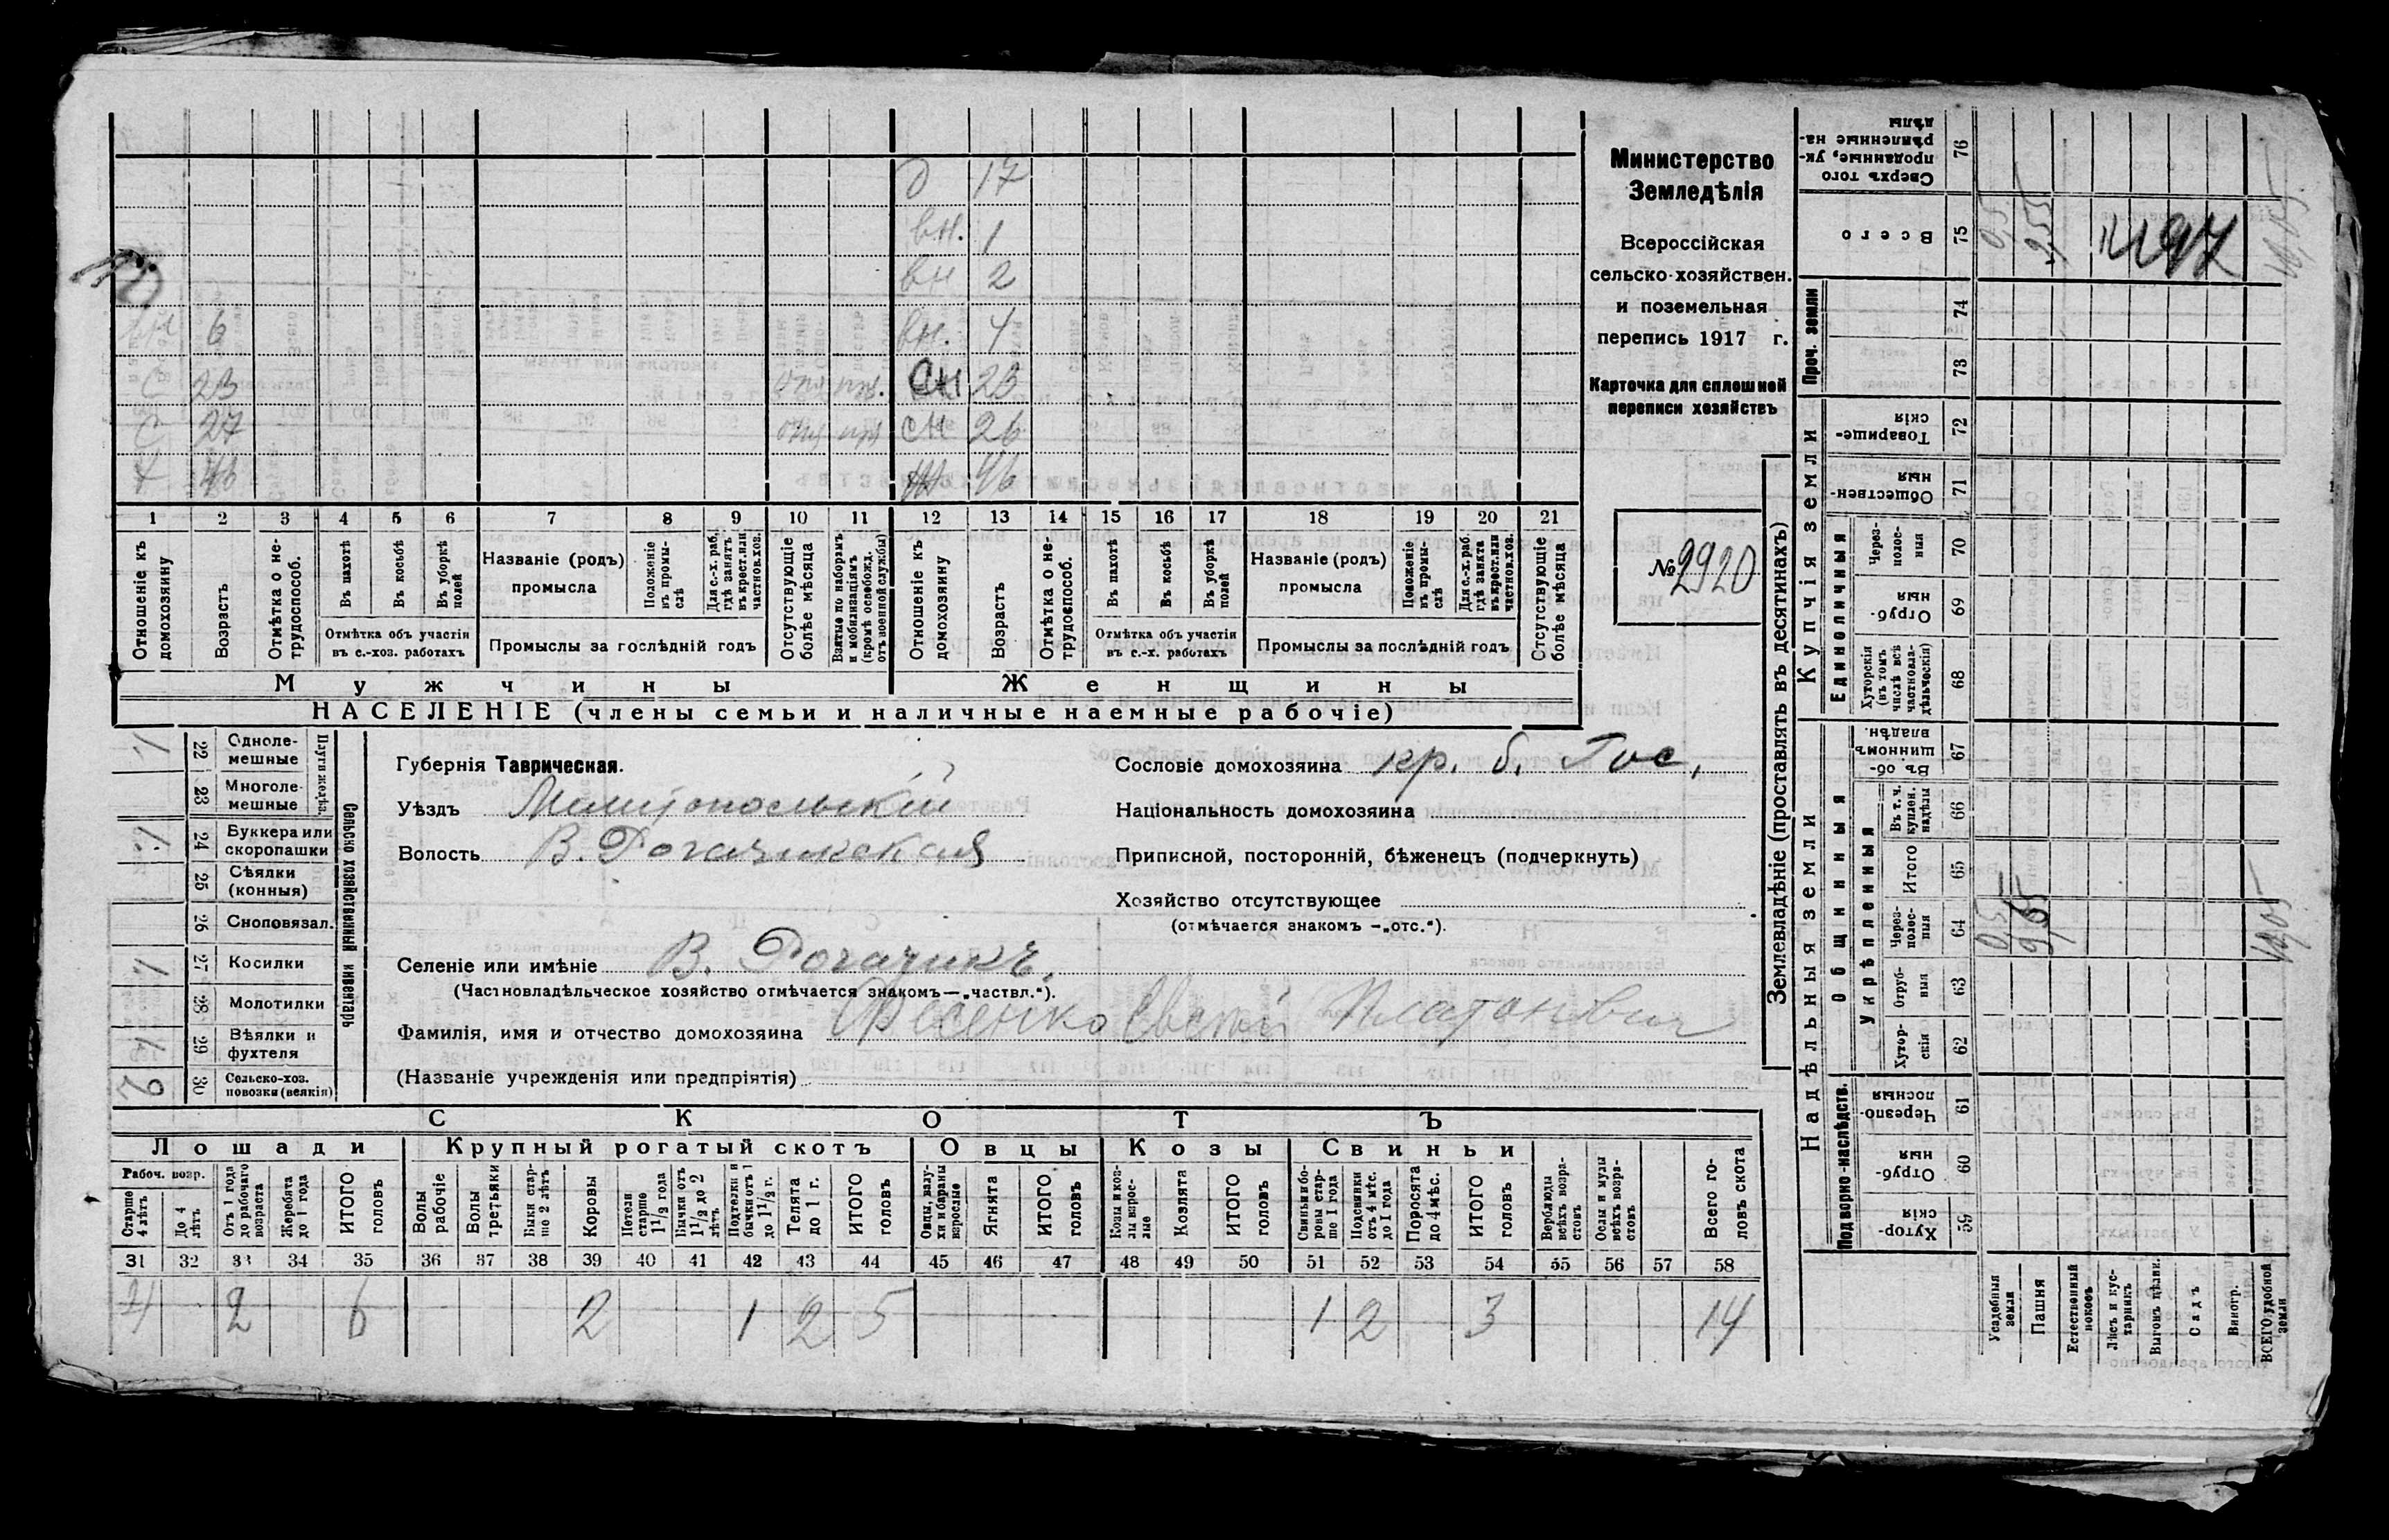 д 17
вн. 1
вн 2
вн 6 вн. 4
С 23 СН 23
С 27 СН 26
46 46
1 2 3 4 5 6 7 8 9 10 11 12 13 14 15 16 17 18 19 20 21
Отношеніе къ домохозяину
Возрастъ
Отмѣтка о не-трудоспособ.
Въ пахотѣ
Въ косьбѣ
Въ уборкѣ полей
Отмѣтка объ участіи
въ с.-хоз. работахъ
Названіе (родъ)
промысла
Положеніе въ промы-слѣ
Для с.-х. раб. гдѣ занятъ въ крест. или частновл. хоз.
Промыслы за послѣдній годъ
Отсутствующіе болѣе мѣсяца
Взятые по наборамъ и мобилизаціямъ (кромѣ освобожд. отъ военной службы)
Отношеніе къ домохозяину
Возрастъ
Отмѣтка о не-трудоспособ.
Въ пахотѣ
Въ косьбѣ
Въ уборкѣ полей
Отмѣтка объ участіи
въ с.-х. работахъ
Названіе (родъ)
промысла
Положеніе въ промы-слѣ
Для с.-х. раб. гдѣ занята въ крест. или частнов. хоз.
Промыслы за послѣдній годъ
Отсутствующіе болѣе мѣсяца
Мужчины Женщины
НАСЕЛЕНІЕ (члены семьи и наличные наемные рабочіе)
Министерство
Земледѣлія
Всероссійская
сельско-хозяйствен.
и поземельная
перепись 1917 г.
Карточка для сплошной
переписи хозяйствъ
№ 2920
1 22 Одноле-мешные
23 Многоле-мешные
Плуги желѣз.
1 24 Буккера или скоропашки
25 Сѣялки (конныя)
26 Сноповязал.
1 27 Косилки
28 Молотилки
1 29 Вѣялки и фухтеля
2 30 Сельско-хоз. повозки (всякія)
Сельско хозяйственный инвентарь
Губернія Таврическая.
Уѣздъ Мелитопольскій
Волость В. Рогачикская
Сословіе домохозяина кр. б. Гос.
Національность домохозяина
Приписной, посторонній, бѣженецъ (подчеркнуть)
Хозяйство отсутствующее
(отмѣчается знакомъ —„отс.“).
Селеніе или имѣніе В. Рогачикъ.
(Частновладѣльческое хозяйство отмѣчается знакомъ—„частвл.“).
Фамилія, имя и отчество домохозяина Фесенко Евсей Платонович
(Названіе учрежденія или предпріятія)
СКОТЪ
Лошади Крупный рогатый скотъ Овцы Козы Свиньи
Рабоч. возр.
Старше 4 лѣтъ
До 4 лѣтъ
Отъ 1 года до рабочаго возраста
Жеребята до 1 года
ИТОГО головъ
Волы рабочіе
Волы третьяки
Быки стар-ше 2 лѣтъ
Коровы
Нетели старше 1 1/2 года
Бычки отъ 1 1/2 до 2 лѣтъ
Подтелки и бычки отъ 1 до 1 1/2 г.
Телята до 1 г.
ИТОГО головъ
Овцы, валу-хи и бараны взрослые
Ягнята
ИТОГО головъ
Козы и коз-лы взрос-лые
Козлята
ИТОГО головъ
Свиньи и бо-ровы стар-ше 1 года
Подсвинки отъ 4 мѣс. до 1 года
Поросята до 4 мѣс.
ИТОГО головъ
Верблюды всѣхъ возра-стовъ
Ослы и мулы всѣхъ возра-стовъ
Всего го-ловъ скота
31 32 33 34 35 36 37 38 39 40 41 42 43 44 45 46 47 48 49 50 51 52 53 54 55 56 57 58
4 2 6 2 1 2 5 1 2 3 14
Землевладѣніе (проставлять въ десятинахъ)
Надѣльныя земли
Купчія земли
Подворно-наслѣдств.
Общинныя
Укрѣпленныя
Единоличныя
Проч. земли
Сверхъ того проданные, ук-рѣпленные на-дѣлы 76
Всего 75 0,5 9,55
74
73
Товарище-скія 72
Обществен-ныя 71
Через-полос-ныя 70
Отруб-ныя 69
Хуторскія (въ томъ числѣ всѣ частновла-дѣльческія) 68
Въ об-щинномъ владѣн. 67
Въ т. ч. куплен. надѣлы 66
Итого 65
Через-полос-ныя 64 0,5 9,55 10,05
Отруб-ныя 63
Хутор-скія 62
Черезпо-лосныя 61
Отруб-ныя 60
Хутор-скія 59
Усадебная земля
Пашня
Естественный покосъ
Лѣсъ и кус-тарникъ
Выгонъ цѣлин.
Садъ
Виногр.
ВСЕГО удобной земли